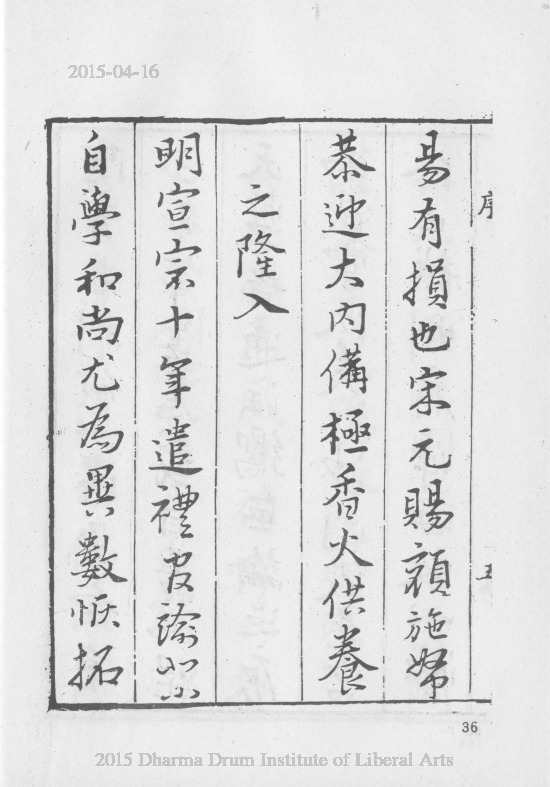 2015-04-16
序
五
有損也宋元賜額施帑
恭迎大內備極香火供養
之隆入
明宣宗十年遣禮官諭
自學和尚尤為異數恢拓
36
2015 Dharma Drum Institute of Liberal Arts